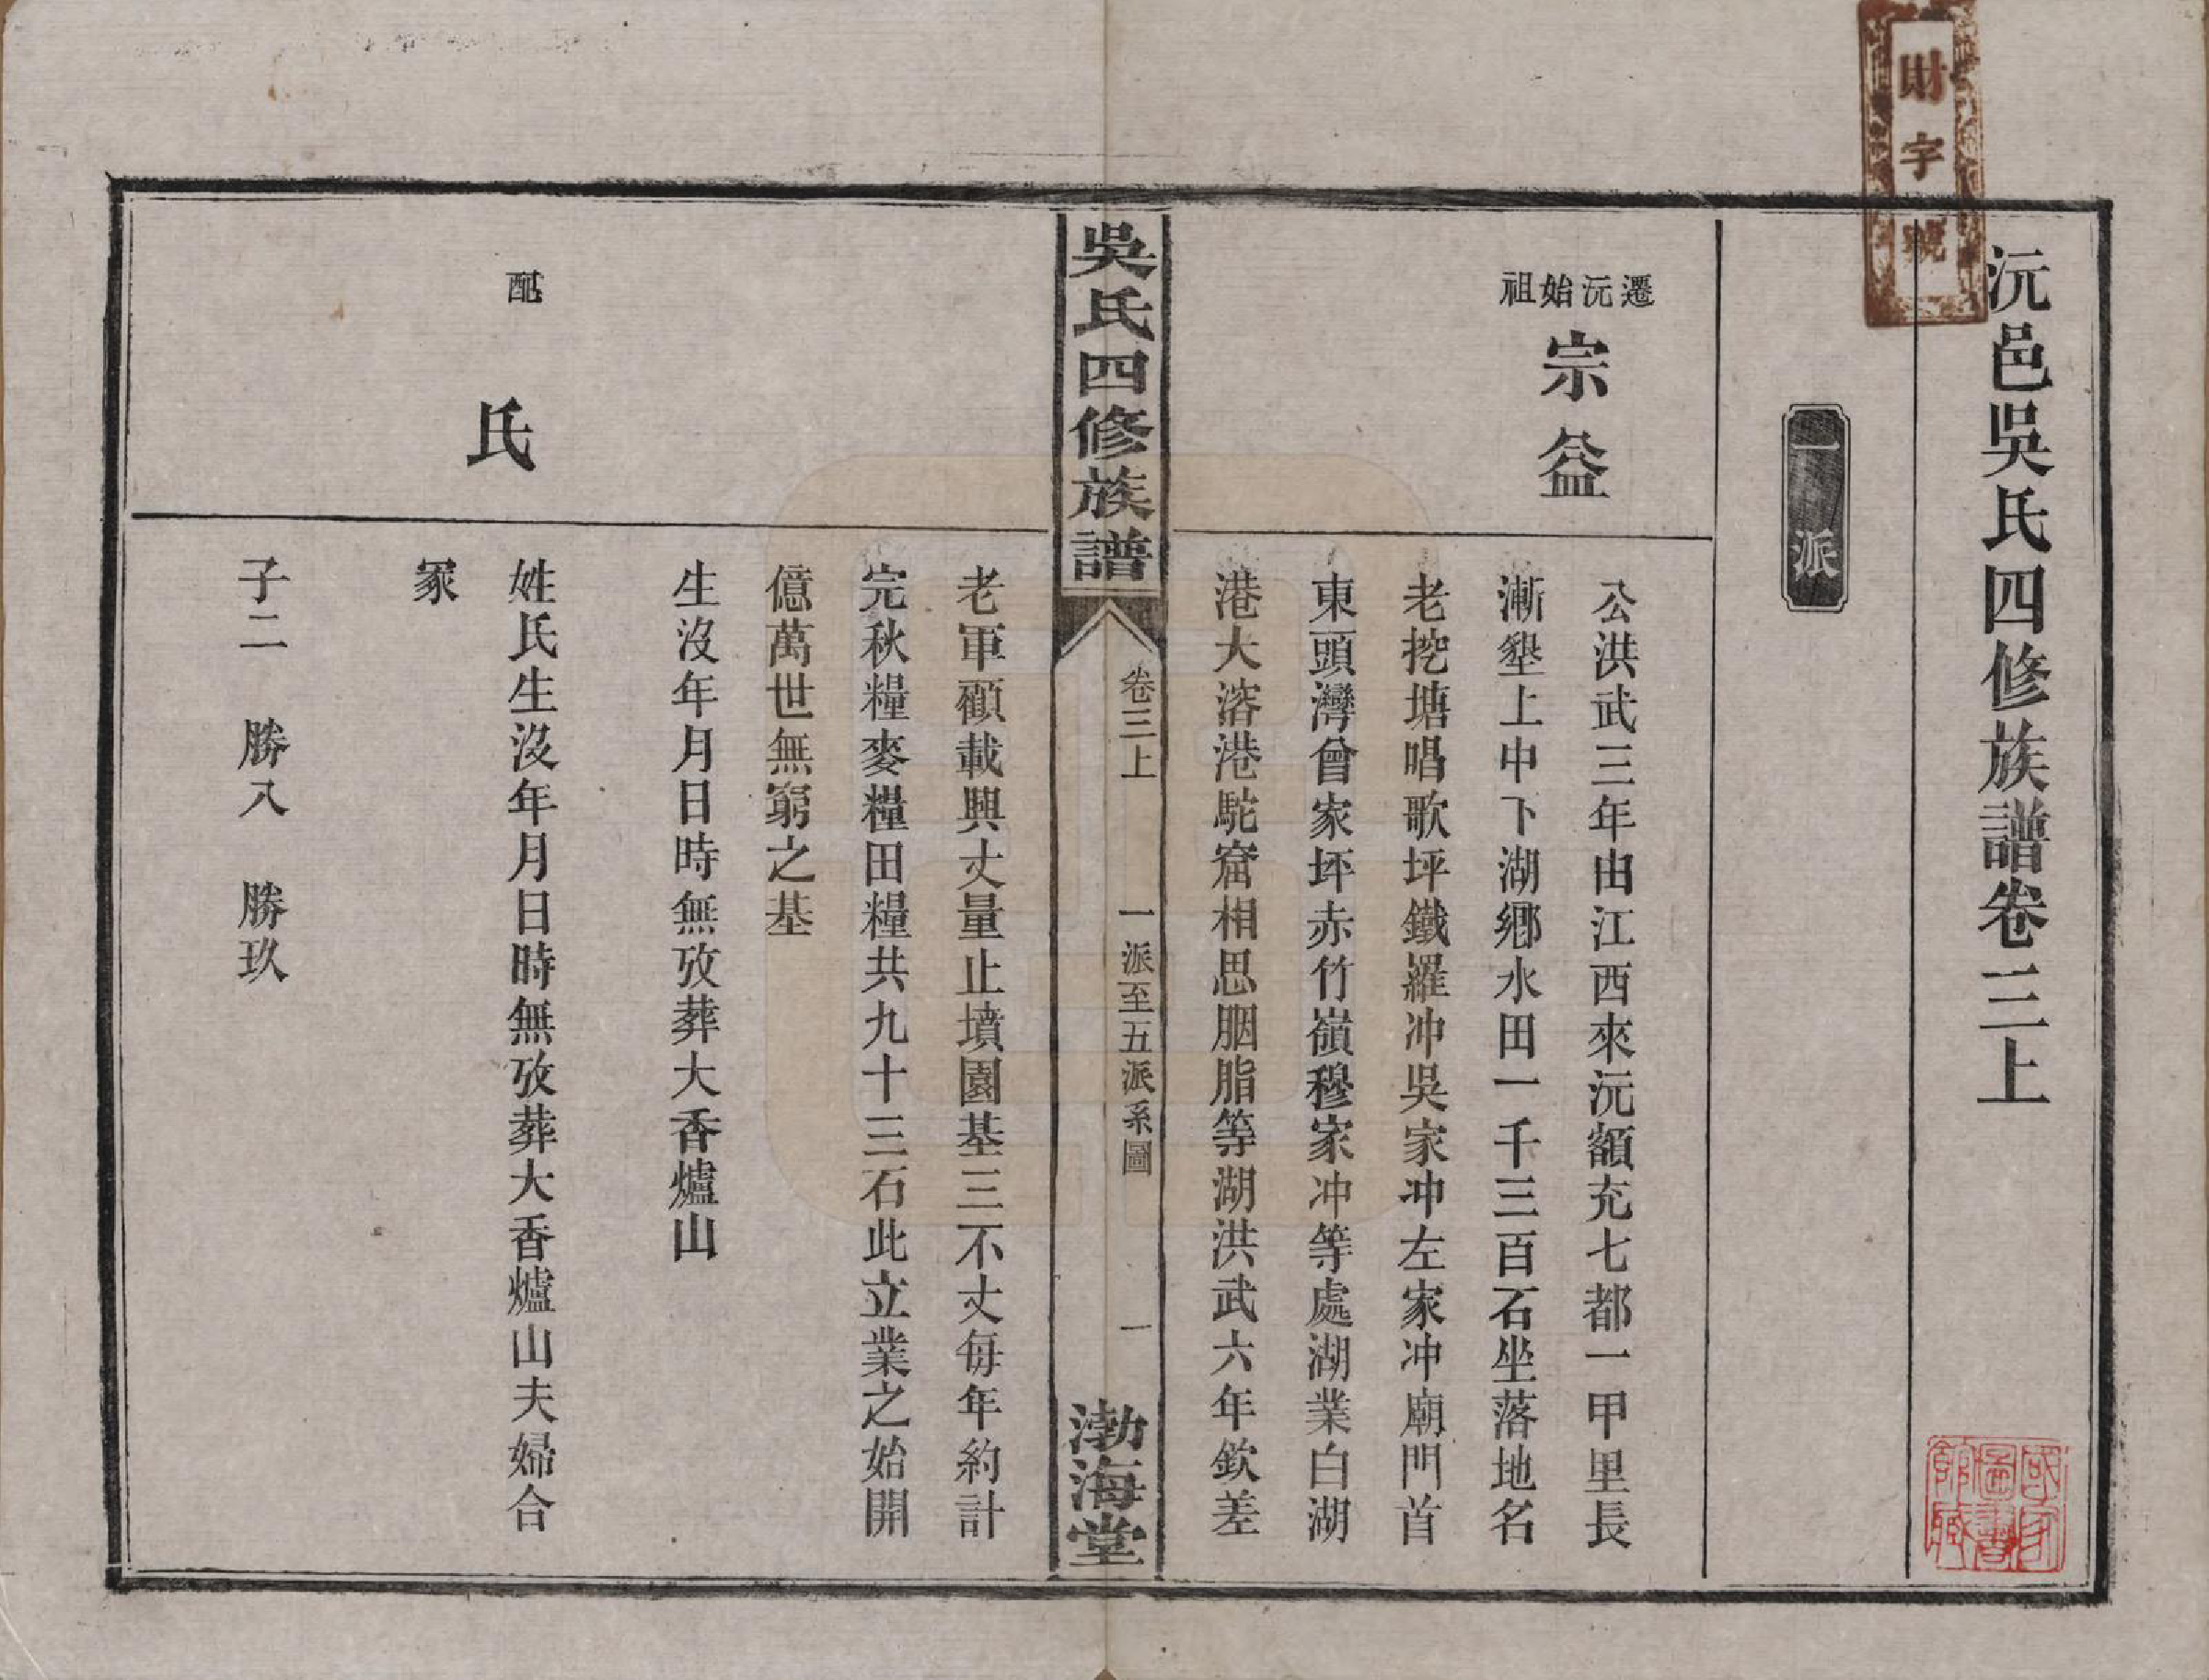 財字號
沅邑吳氏四修族譜卷三上
一派
遷沅始祖
宗益
公洪武三年由江西來沅額充七都一甲里長
漸墾上中下湖鄉水田一千三百石坐落地名
老挖塘唱歌坪鐵羅冲吳家冲左家冲廟門首
東頭灣曾家坪赤竹嶺穆家冲等處湖業白湖
港大溶港駝窟相思胭脂等湖洪武六年欽差
吳氏四修族譜
卷三上
一派至五派系圖
一
渤海堂
老軍顧載興丈量止墳園基三不丈每年約計
完秋糧麥糧田糧共九十三石此立業之始開
億萬世無窮之基
生沒年月日時無攷葬大香爐山
配
氏
姓氏生沒年月日時無攷葬大香爐山夫婦合
冢
子二 勝八 勝玖
國家圖書館藏